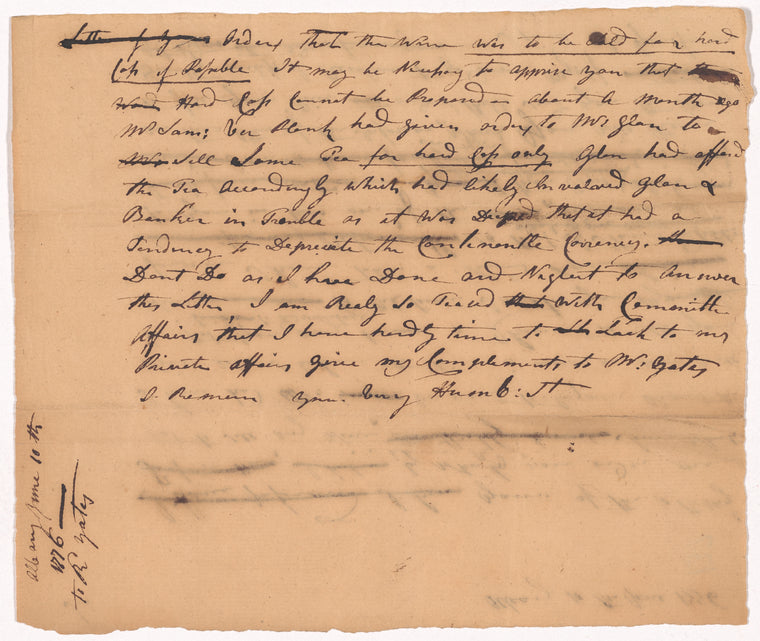 Letter of Yours Orders that the Wine was to be Sold for hard
Cash if Possable It may be Nessesary to apprise you that
Hard Cash Cannot be Proposed as about a month ago
Mr Sam: Ver Plank had given orders to Mr Glen to
Sell Some Tea for hard Cash only Glen had offerd
the Tea Accordingly which had likely Involved Glen &
Bancker in Trouble as it Was Deemed that it had a
Tendency to Depreciate the Continentle Currency.
Dont Do as I have Done and Neglect to Answer
this Letter, I am Realy So Teased With Committe
Affairs that I have hardly time to Look to my
Private affairs give my Complements to Mrs Yates
I Remain your Very Humb: St
Albany June 10th
1776
To Rd Yates